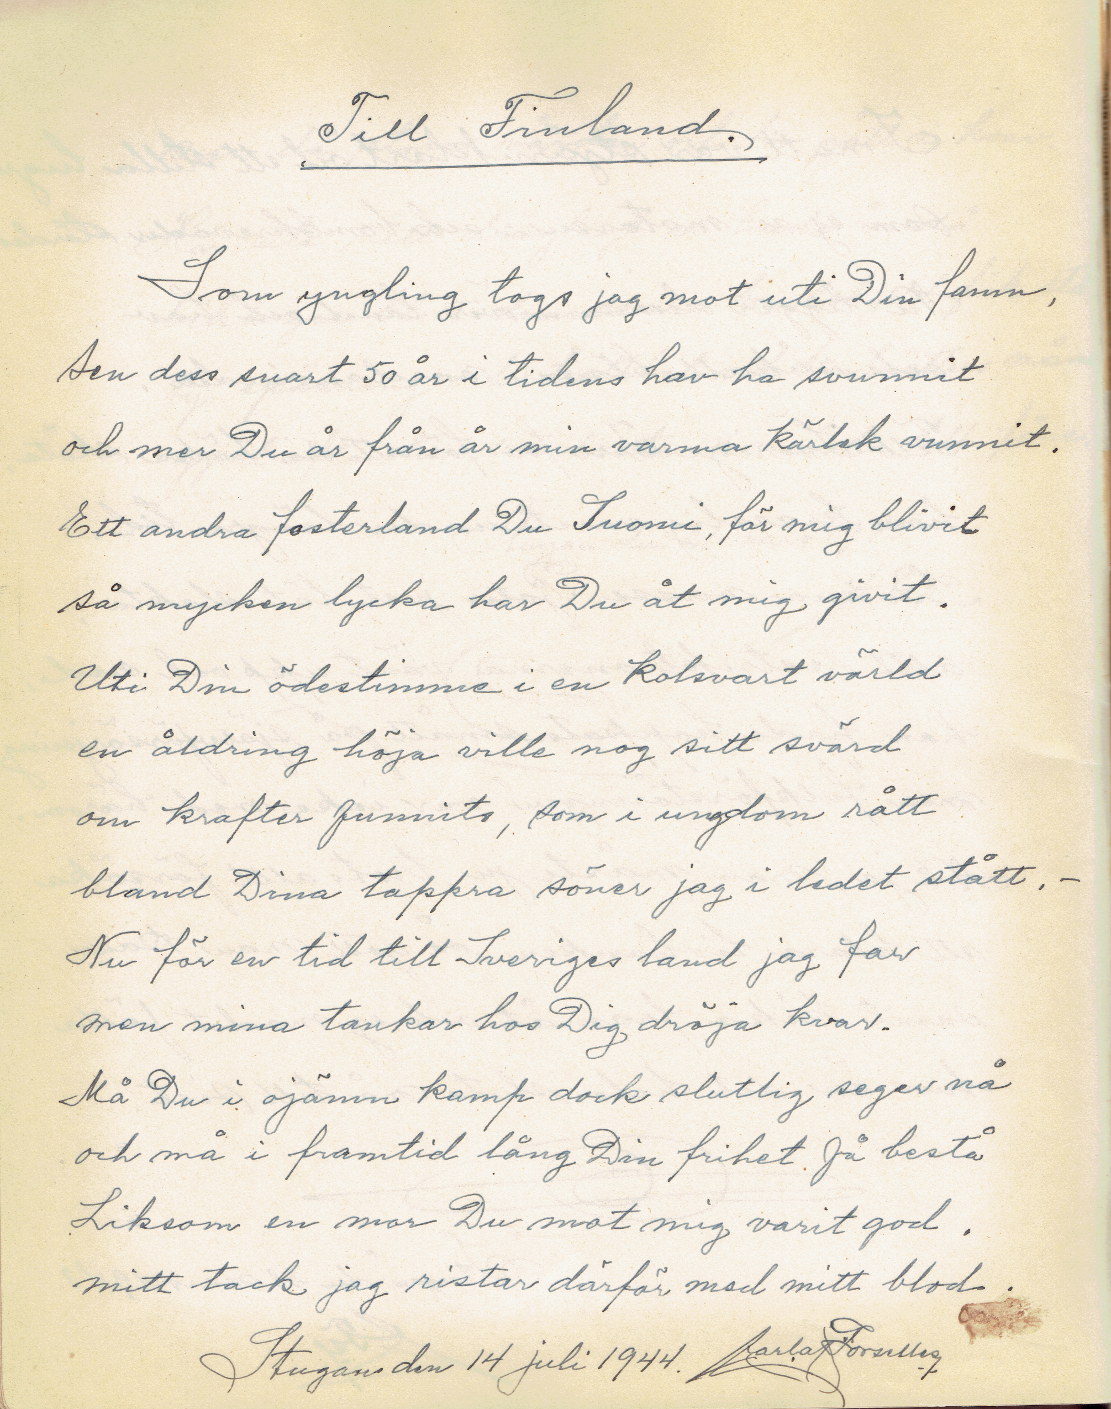 Till Finland.
Som yngling togs jag mot uti Din famn,
sen dess snart 50 år i tidens hav ha svunnit
och mer Du år från år min varma kärlek vunnit.
Ett andra fosterland Du Suomi, för mig blivit
så mycken lycka har Du åt mig givit.
Uti Din ödestimme i en kolsvart värld
en åldring höja ville nog sitt svärd
om krafter funnits, som i ungdom rått
bland Dina tappra söner jag i ledet stått. –
Nu för en tid till Sveriges land jag far
men mina tankar hos Dig dröja kvar.
Må Du i ojämn kamp dock slutlig seger nå
och må i framtid lång Din frihet få bestå
Liksom en mor Du mot mig varit god.
mitt tack jag ristar därför med mitt blod.
Stugan den 14 juli 1944.